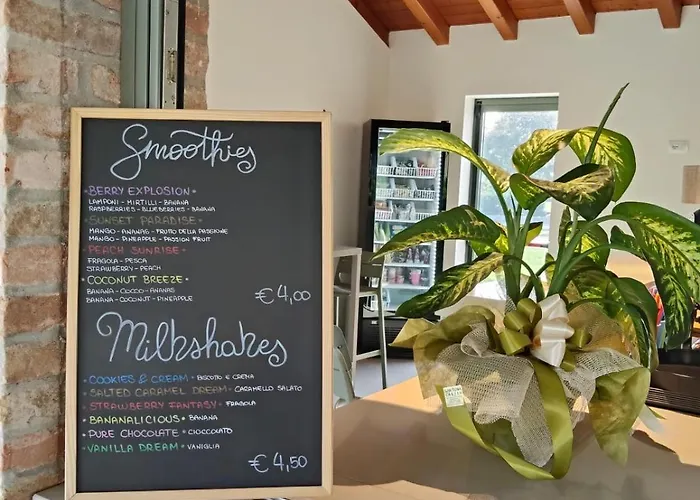 Smoothies
• BERRY EXPLOSION •
LAMPONI - MIRTILLI - BANANA
RASPBERRIES - BLUEBERRIES - BANANA
• SUNSET PARADISE •
MANGO - ANANAS - FRUTTO DELLA PASSIONE
MANGO - PINEAPPLE - PASSION FRUIT
• PEACH SUNRISE •
FRAGOLA - PESCA
STRAWBERRY - PEACH
• COCONUT BREEZE •
BANANA - COCCO - ANANAS
BANANA - COCONUT - PINEAPPLE
€ 4,00
Milkshakes
• COOKIES & CREAM • BISCOTTO E CREMA
• SALTED CARAMEL DREAM • CARAMELLO SALATO
• STRAWBERRY FANTASY • FRAGOLA
• BANANALICIOUS • BANANA
• PURE CHOCOLATE • CIOCCOLATO
• VANILLA DREAM • VANIGLIA
€ 4,50